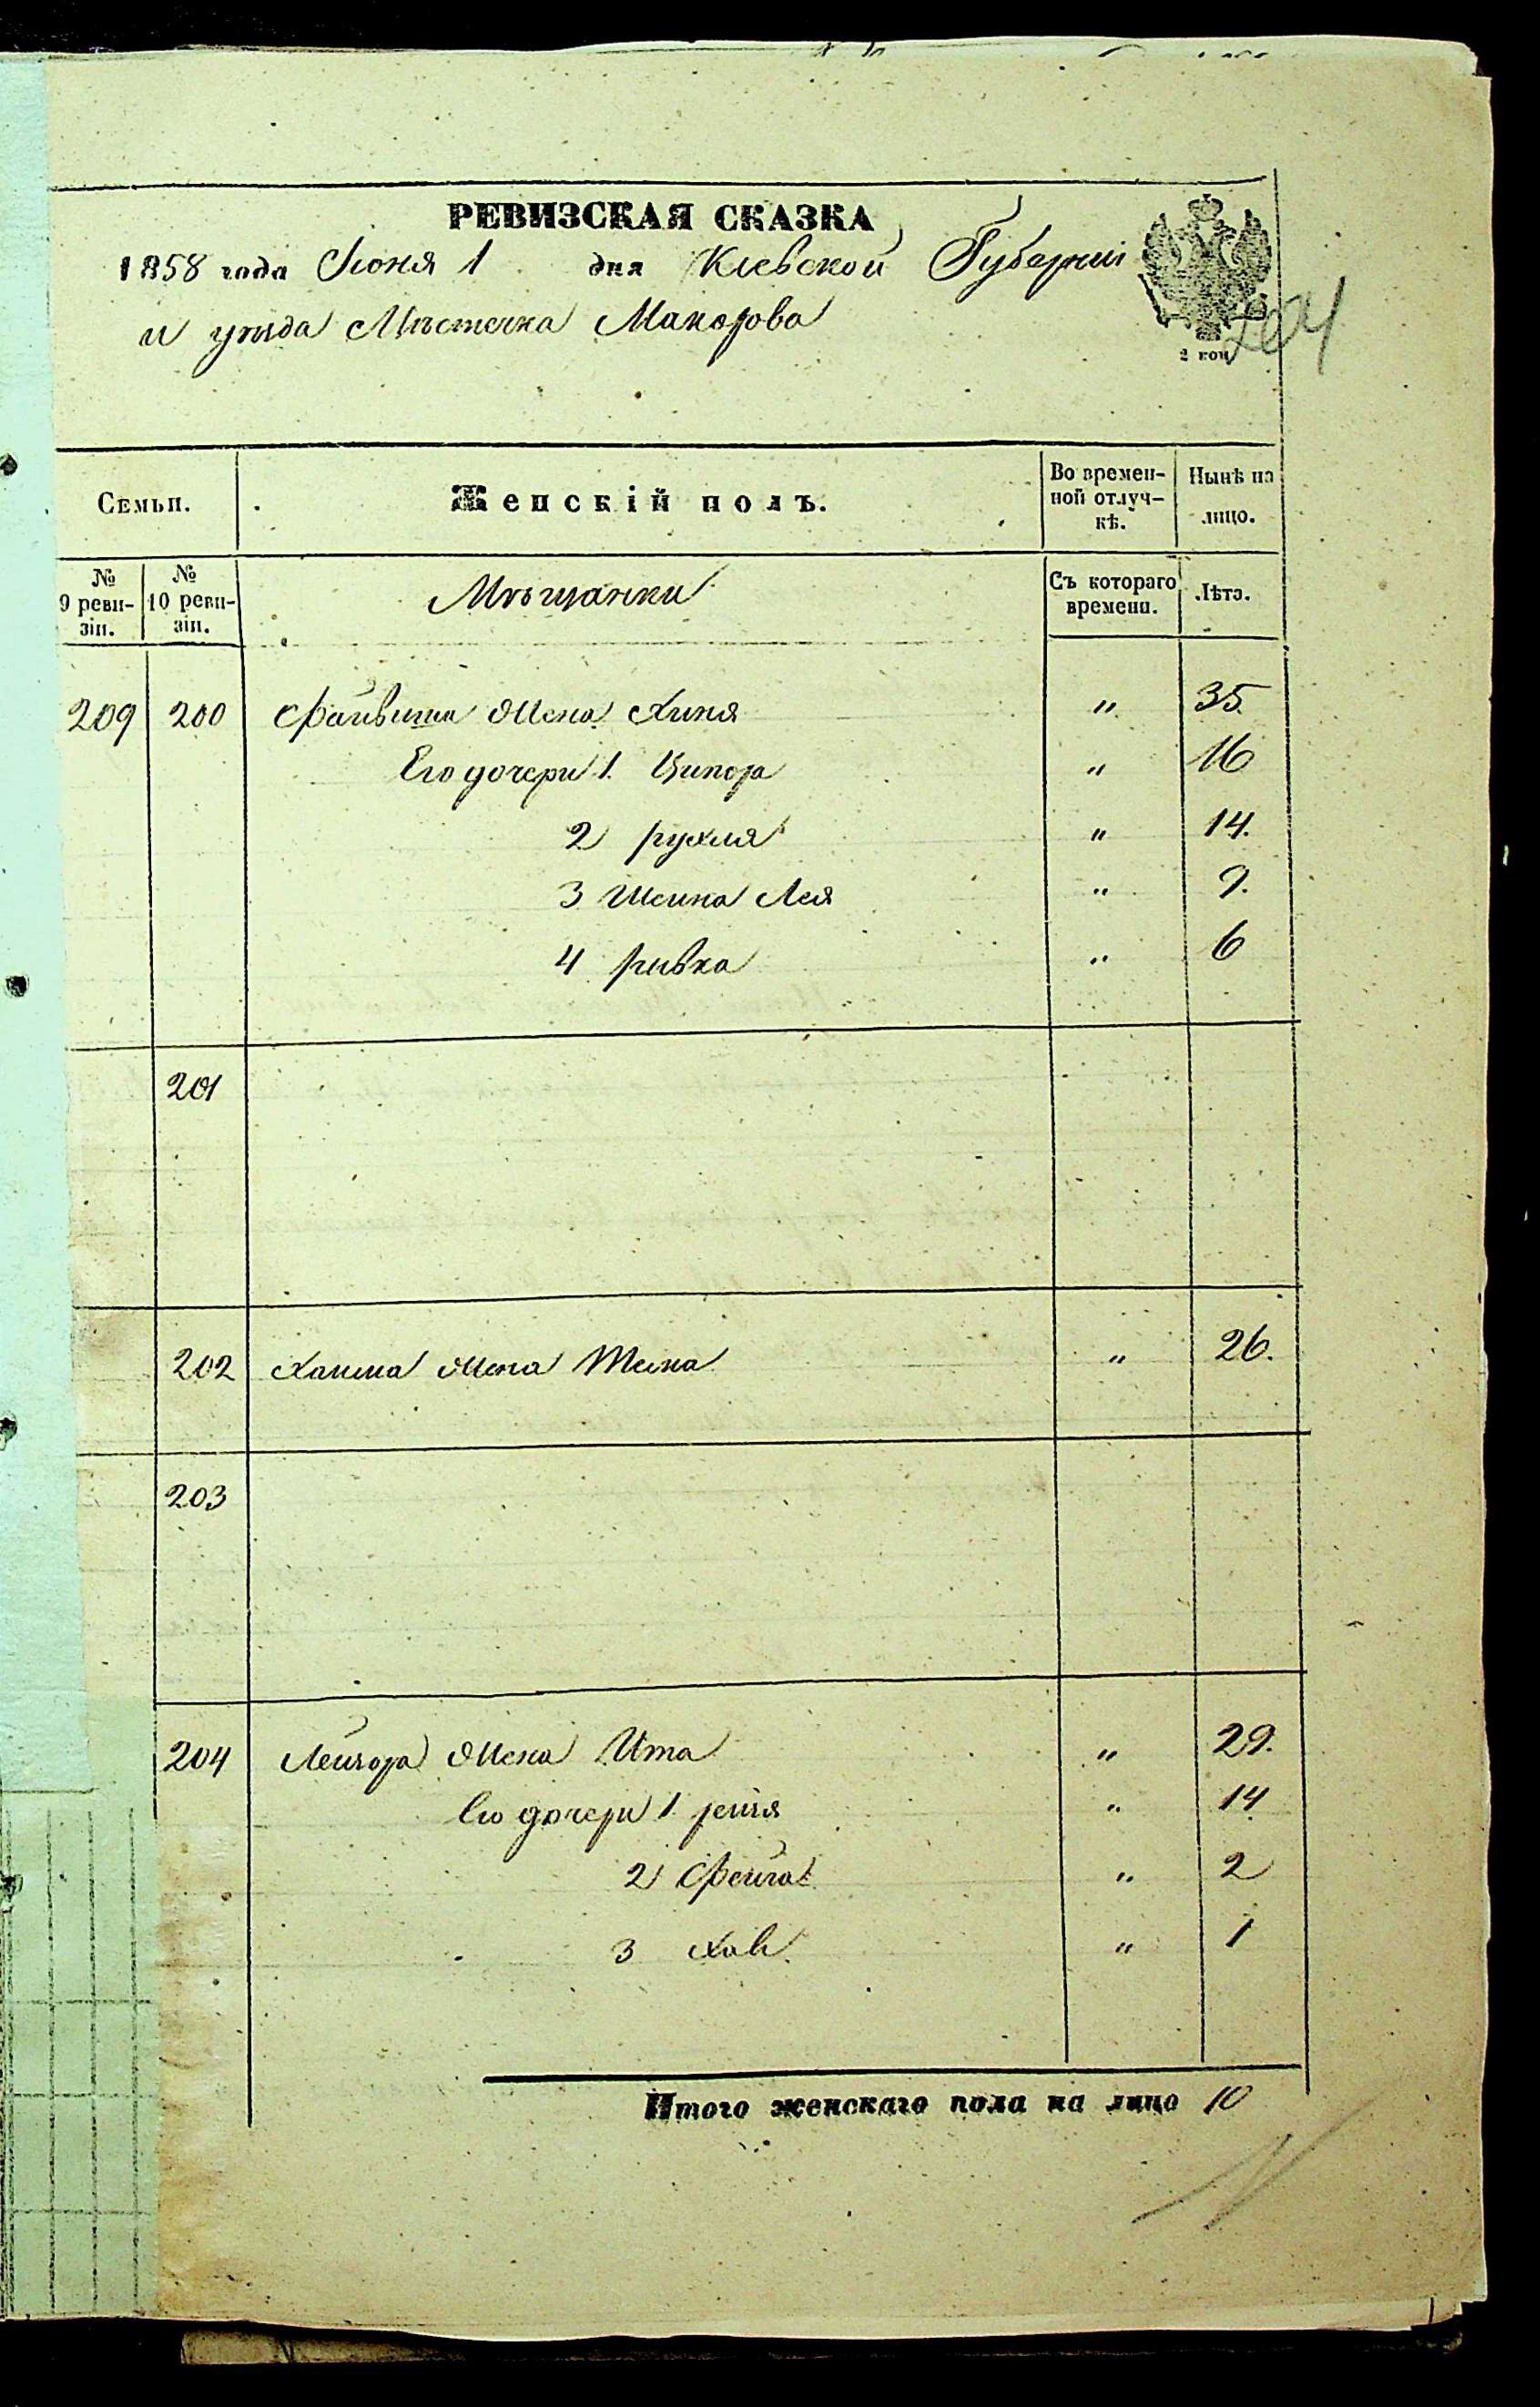 РЕВИЗСКАЯ СКАЗКА
1858 года Іюня 1 дня Кіевской Губерніи
и уѣзда Мѣстечка Макарова
2 коп.
204
Семьи.
Женскій полъ.
Во времен-
ной отлуч-
кѣ.
Нынѣ на
лицо.
№
9 реви-
зіи.
№
10 реви-
зіи.
Мѣщанки
Съ котораго
времени.
Лѣта.
209 200 Файвиша Жена Хиня " 35.
Его дочери 1. Ципора " 16
2 рухля " 14.
3 Шейна Лея " 9.
4 ривка " 6
201
202 Хаима Жена " 26.
203
204 Лейзора Жена Ита " 29.
Его дочери 1. " 14
2 Фейга " 2
3 " 1
Итого женскаго пола на лицо 10